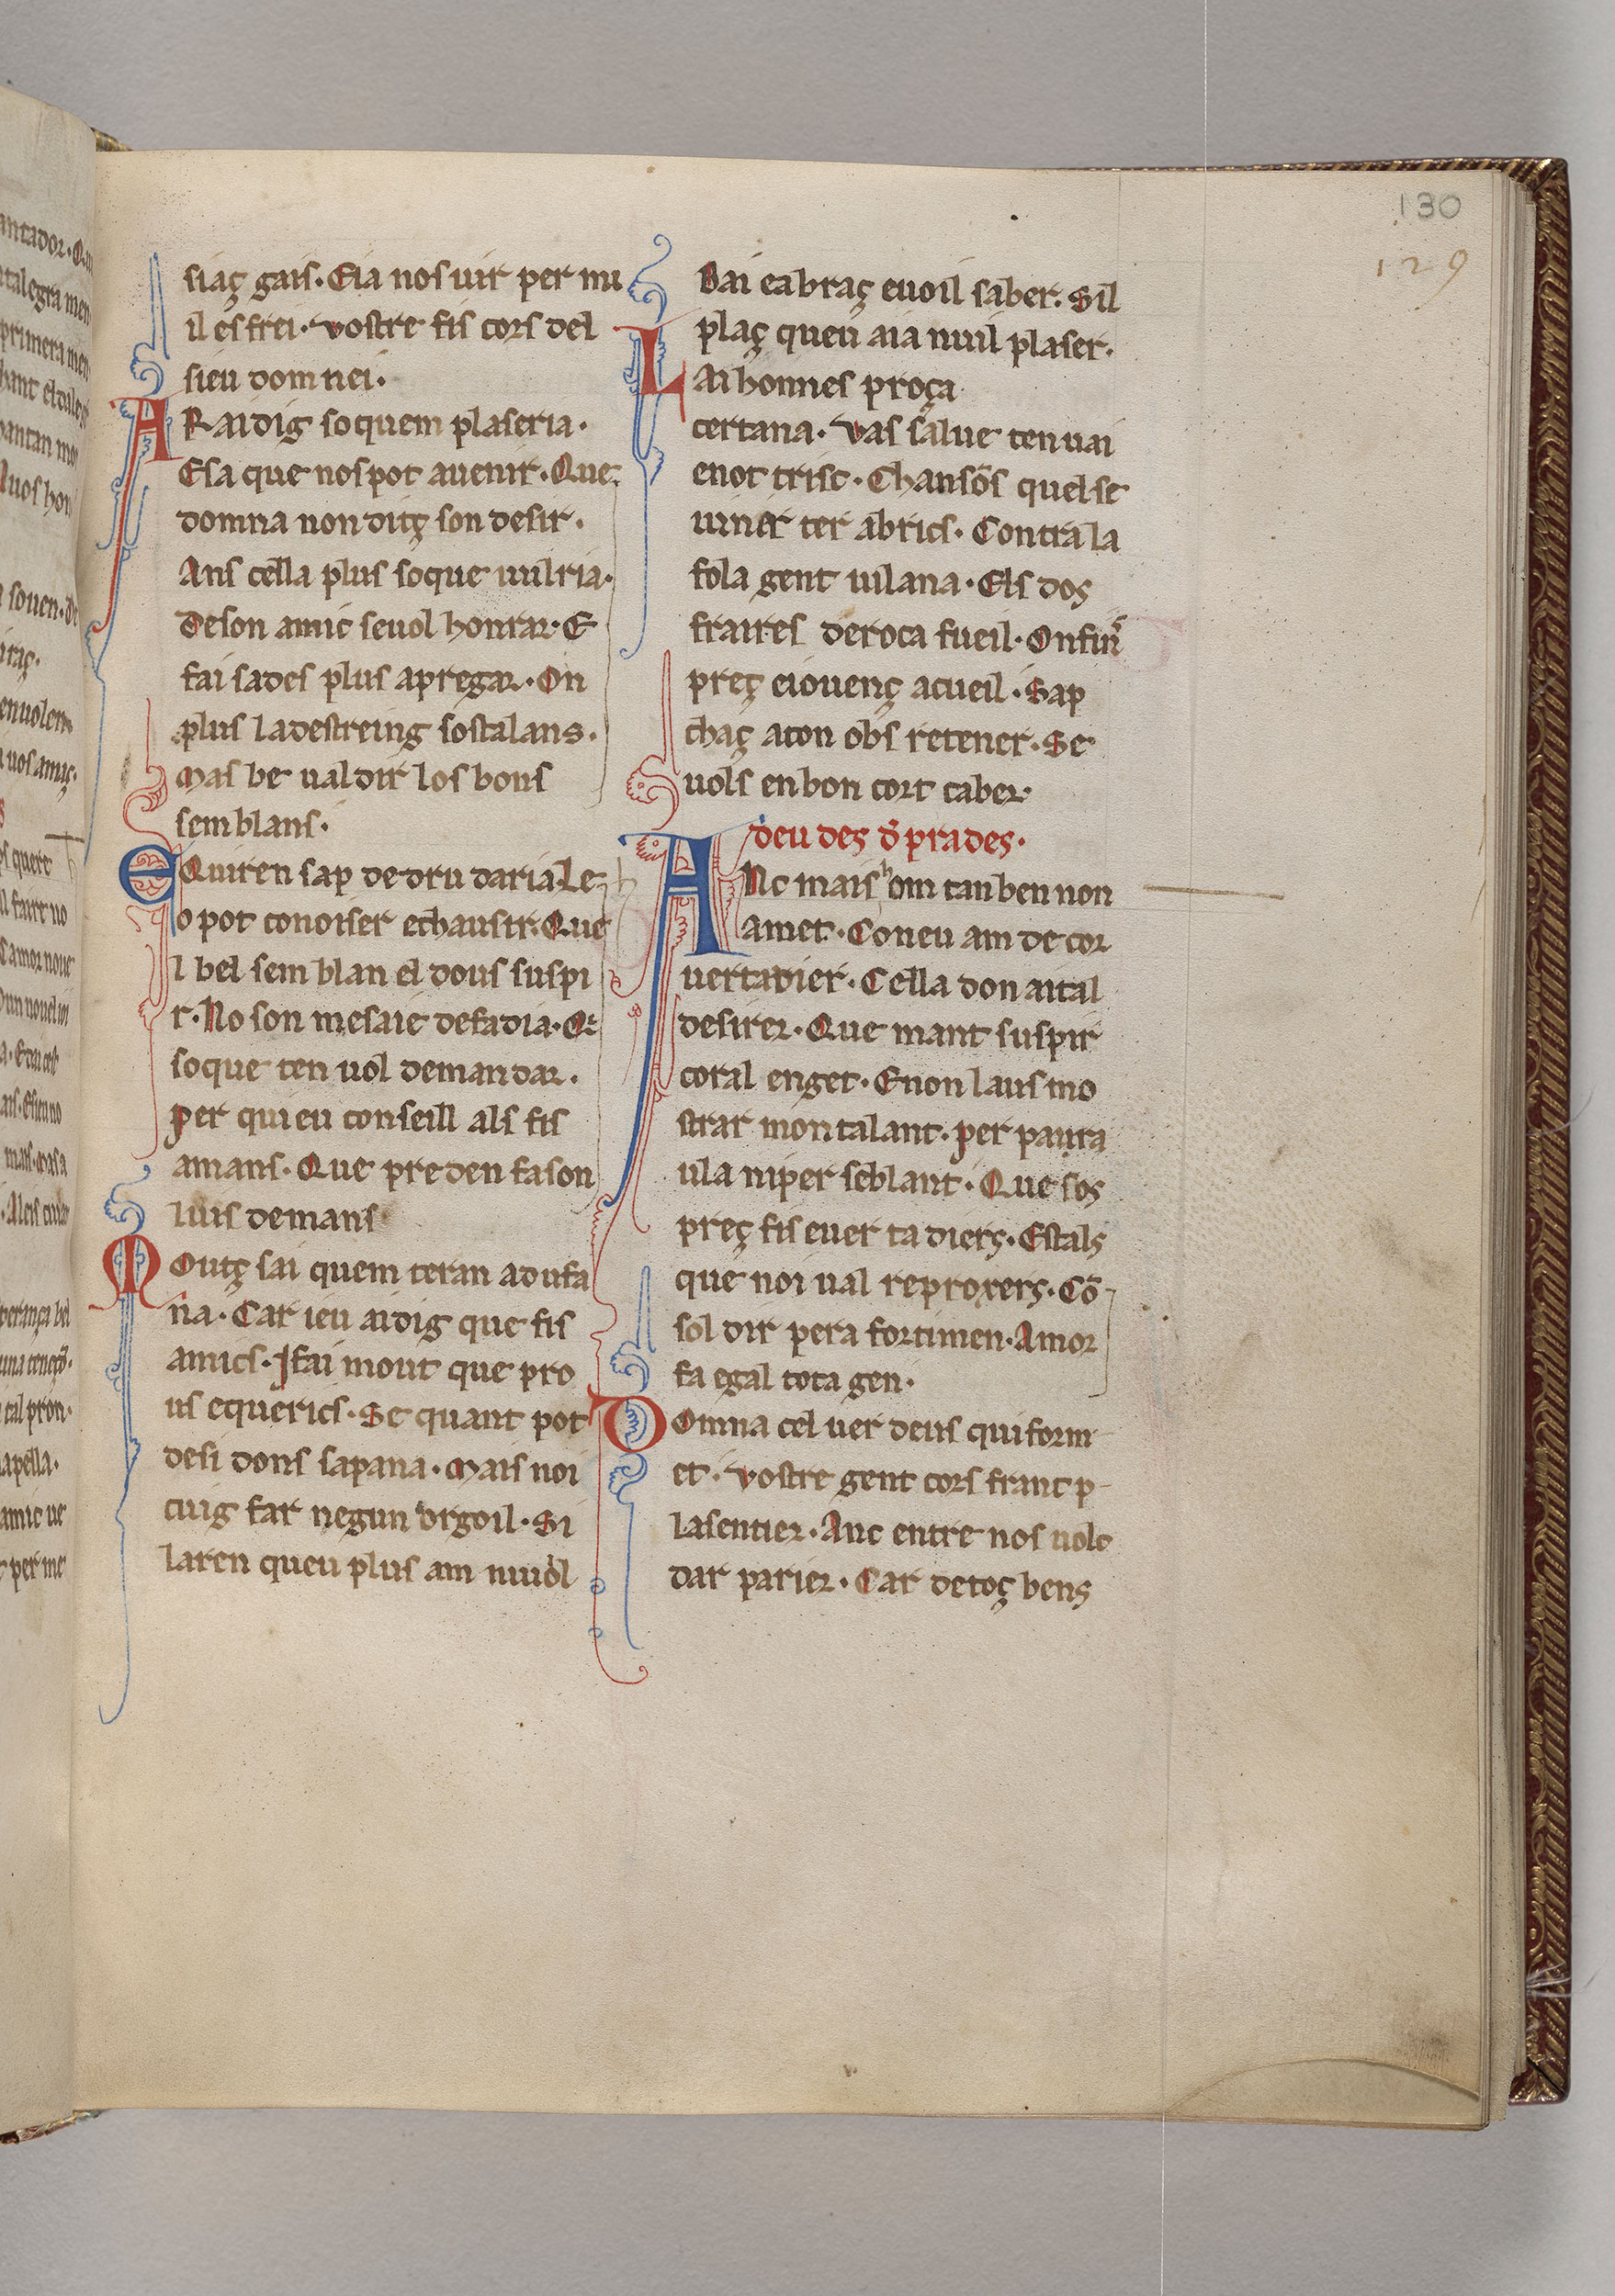 130
129
siaç gais. Eia nos uir per nu
il esfrei. vostre fis cors del
sieu domnei.
ARaidig so quem plaseria.
Esa que nos pot auenir. Que
domna non ditç son desir.
Ans cella plus so que uulria.
de son amic se uol honrar. E
fai sades plus apregar. On
plus la destreing sostalans.
mas be ual dir los bons
semblans.
EQuiren sap de dru daria. Le
o pot conoiser echausir. Que
l bel semblan el dous suspi
r. No son mesaie de fadia. Qe
so que ten uol demandar.
per qui eu conseill als fis
amans. Que preden fason
luis demans
MOutç sai quem teran adufa
na. Car ieu aidig que fis
amics. Ifai mout que pro
us equerics. Se quant pot
de si dons sapana. mais noi
cuig far negun orgoil. Si
laren queu plus am nuuol
Bai eabraç euoil saber. Sil
plaç queu aia nuil plaser.
LAi honnes proça
certana. vas salue ten uai
enot trist. Chansōs quelse
fola gent uilana. Els dos
fraires de roca fueil. On fin
preç eiouenç acueil. Sap
chaç aton obs retener. Se
uols en bon cort caber.
deu des d̄ prades.
ANc mais hom tan ben non
amet. Con eu am de cor
uertadier. Cella don aital
desirer. Que mant suspir
coral enget. Enon laus mo
strar mon talant. per paura
ula ni per seblant. Que sos
preç fis euer ta diers. Estals
que noi ual reproxers. Cō
sol dir pera fortimen. Amor
fa egal tota gen.
DOmna cel uer deus qui form
et. vostre gent cors franc p
lasentier. Anc entre nos uolc
dar parier. Car de toç bens